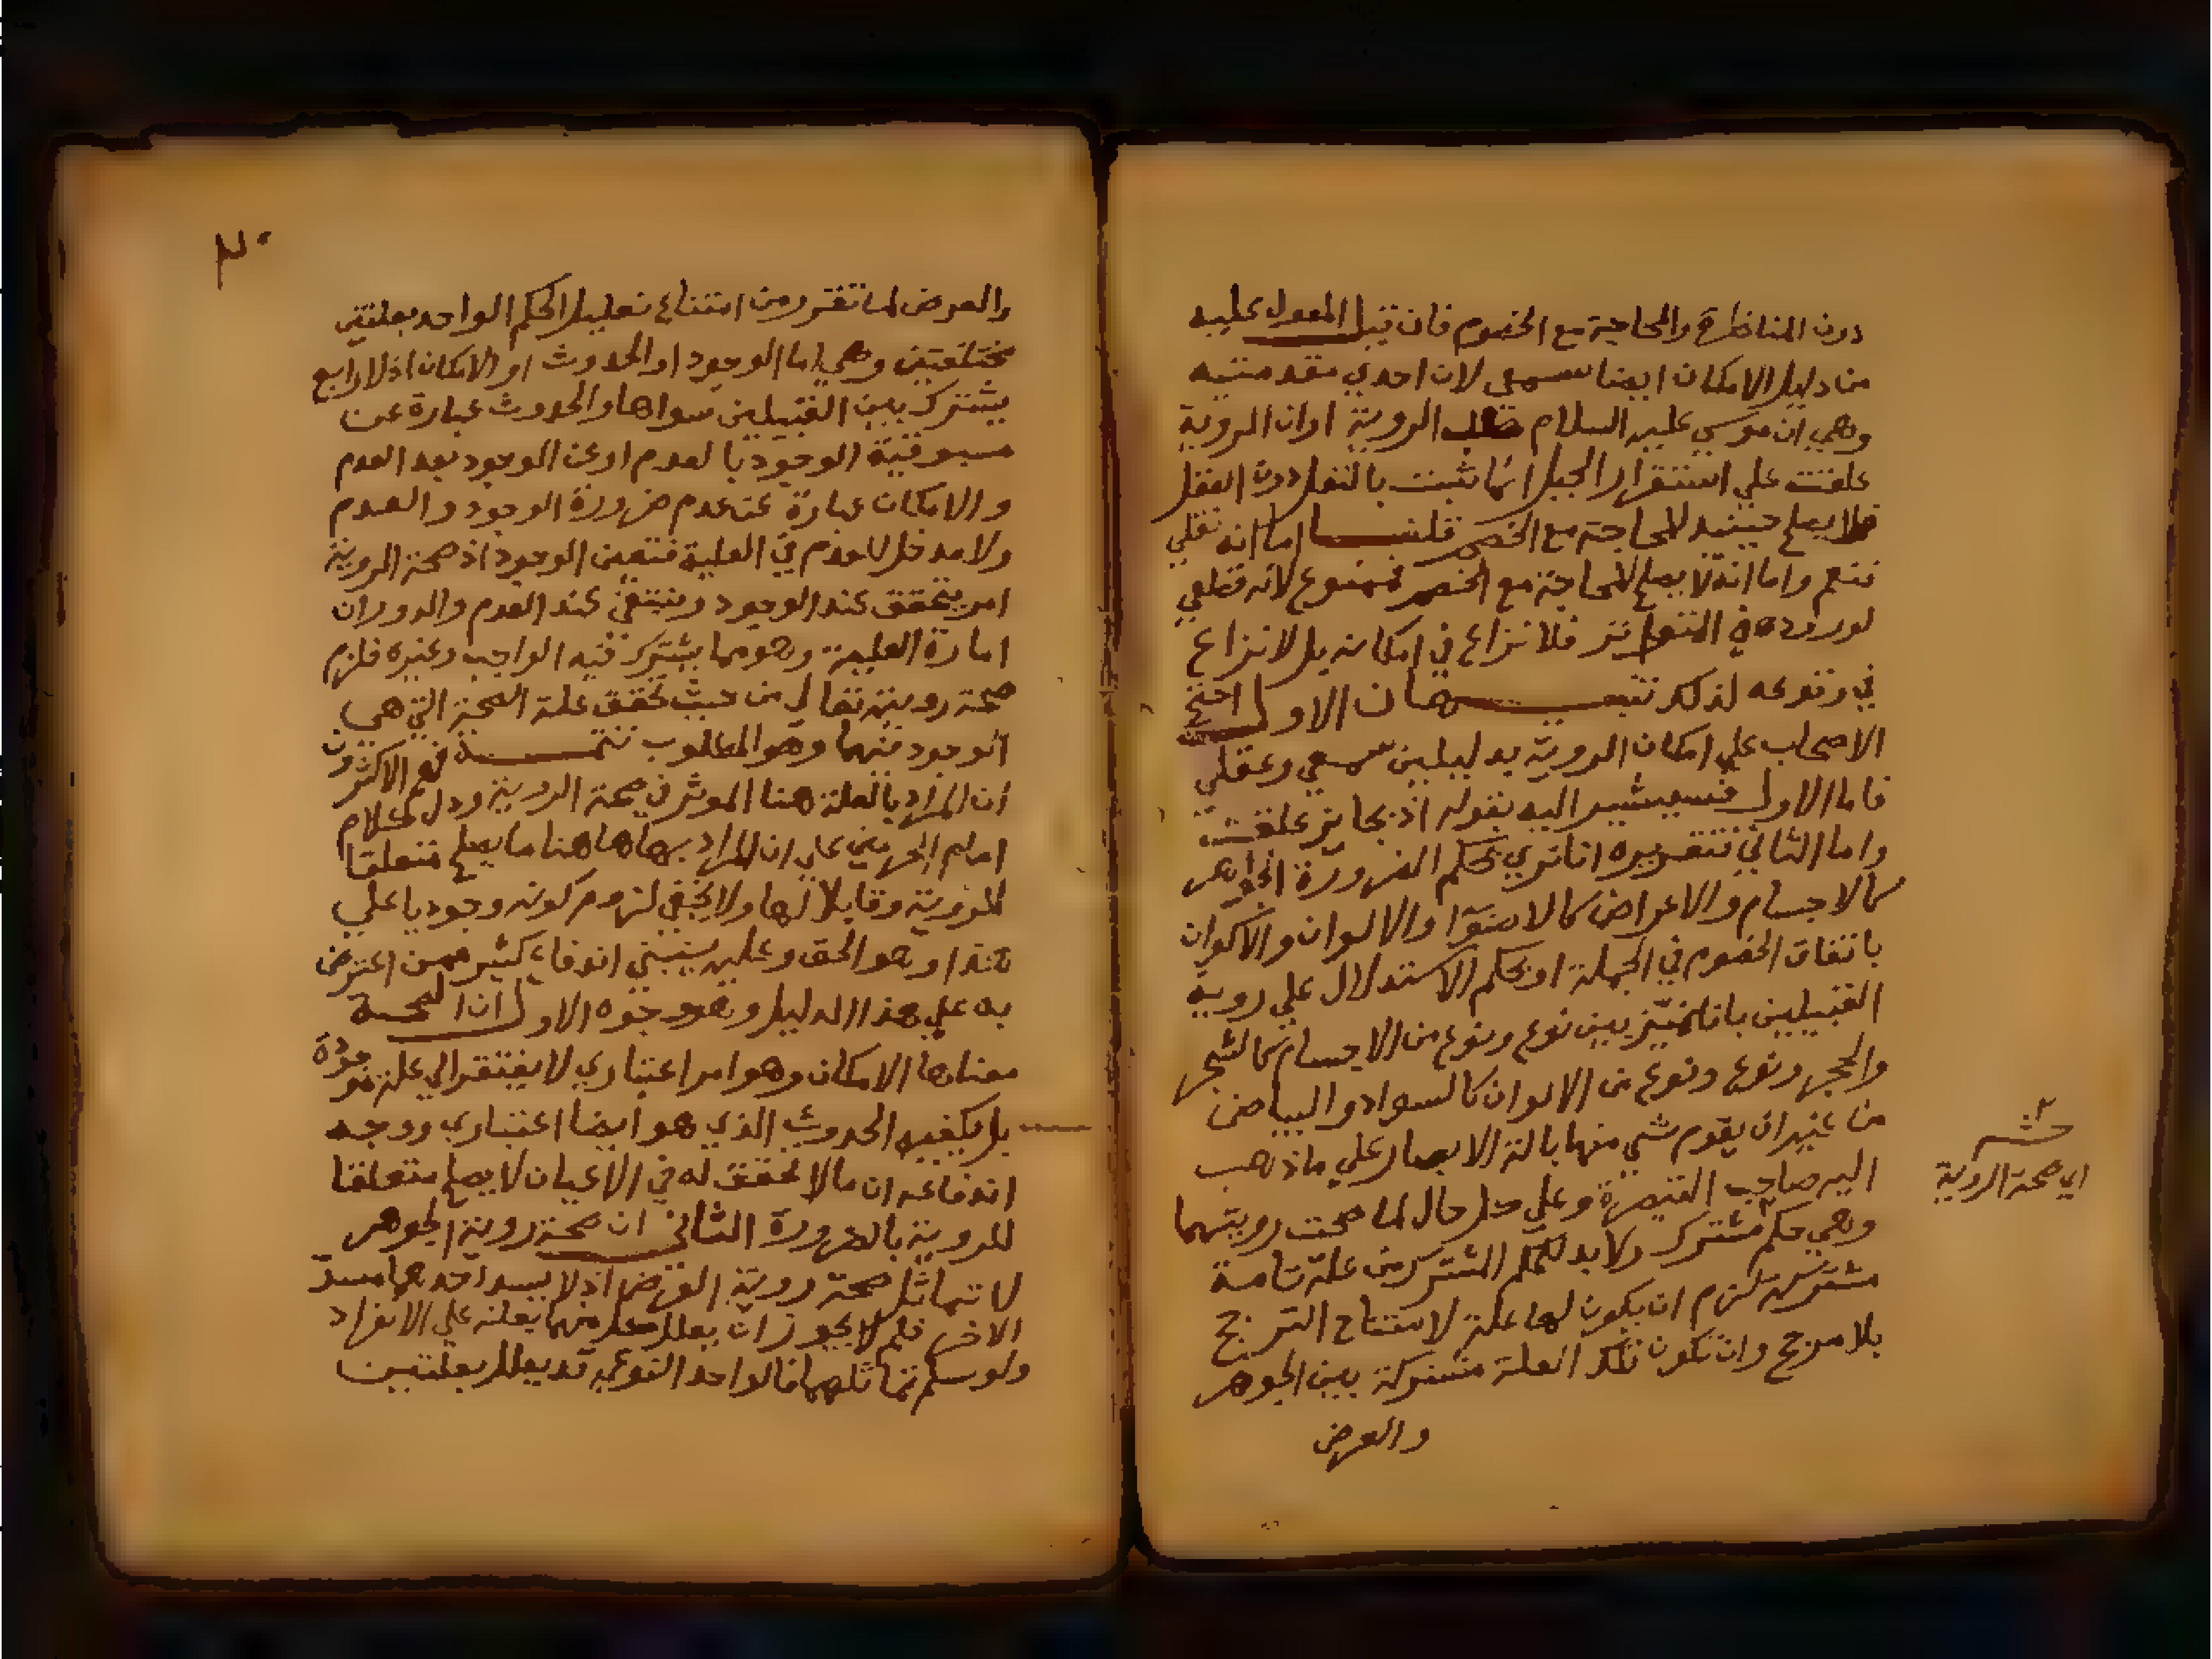 دون المناظرة والمحاجة مع الخصوم فان قيل المعول عليه
من دليل الامكان ايضا سمعي لان احدي مقدمتيه
وهي ان موسي عليه السلام طلب الروية اوان الروية
علقت علي استقرار الجبل انما ثبت بالنقل دون العقل
فلا يصلح حينيد للمحاجة مع الخصم قلنا اما انه نقلي
فنعم واما انه لا يصلح للمحاجة مع الخصم فممنوع لانه قطعي
لوروده في التواتر فلا نزاع في امكانه بل لا نزاع
في وقوعه لذلك تنبيهان الاول احتج
الاصحاب علي امكان الروية بدليلين سمعي وعقلي
فاما الاول فسيشير اليه بقوله اذ بجايز علقت
واما الثاني فتقريره انا نري بحكم الضرورة الجواهر
كالاجسام والاعراض كالاضوآ والالوان والاكوان
باتفاق الخصوم في الجملة او بحكم الاستدلال علي روية
القبيلين بانا نميّز بين نوع ونوع من الاجسام كالشجر
والحجر ونوع ونوع من الالوان كالسواد والبياض
من غير ان يقوم شي منهما بالة الابصار علي ماذهب
اليه صاحب التبصرة وعلي كل حال لما صحت رويتهما
وهي حكم مشترك ولا بد للحكم المشترك من علة تامة
مشتركة لزم ان يكون لها علة لامتناع الترجح
بلا مرجح وان تكون تلك العلة مشتركة بين الجوهر
والعرض
اي صحة الروية
٣٠
والعرض لما تقرر من امتناع تعليل الحكم الواحد بعلتين
مختلفتين وهي اما الوجود او الحدوث او الامكان اذ لا رابع
يشترك بين القبيلين سواها والحدوث عبارة عن
مسبوقية الوجود بالعدم او عن الوجود بعد العدم
والامكان عبارة عن عدم ضرورة الوجود والعدم
ولا مدخل للعدم في العلية فتعين الوجود اذ صحة الروية
امر يتحقق عند الوجود وينتفي عند العدم والدوران
امارة العلية وهو مما يشترك فيه الواجب وغيره فلزم
صحة رويته تعالي من حيث تحقق علة الصحة التي هي
الوجود فيهما وهو المطلوب تتمة فهم الاكثرون
ان المراد بالعلة هنا الموثر في صحة الروية ودل كلام
امام الحرمين علي ان المراد بها هاهنا ما يصلح متعلقا
للروية وقابلا لها ولا يخفي لزوم كونه وجوديا علي
هذا وهو الحق وعليه يبتني اندفاع كثير ممن اعترض
به علي هذا الدليل وهو وجوه الاول ان الصحة
معناها الامكان وهو امر اعتباري لا يفتقر الي علة موجودة
بل يكفيه الحدوث الذي هو ايضا اعتباري ووجه
اندفاعه ان مالا تحقق له في الاعيان لا يصلح متعلقا
للروية بالضرورة الثاني ان صحة روية الجوهر
لا تماثل صحة روية العرض اذ لا يسد احدهما مسدّ
الاخر فلم لا يجوز ان يعلل كل منهما بعلة علي الانفراد
ولو سلم تماثلهما فالواحد النوعي قد يعلل بعلتين